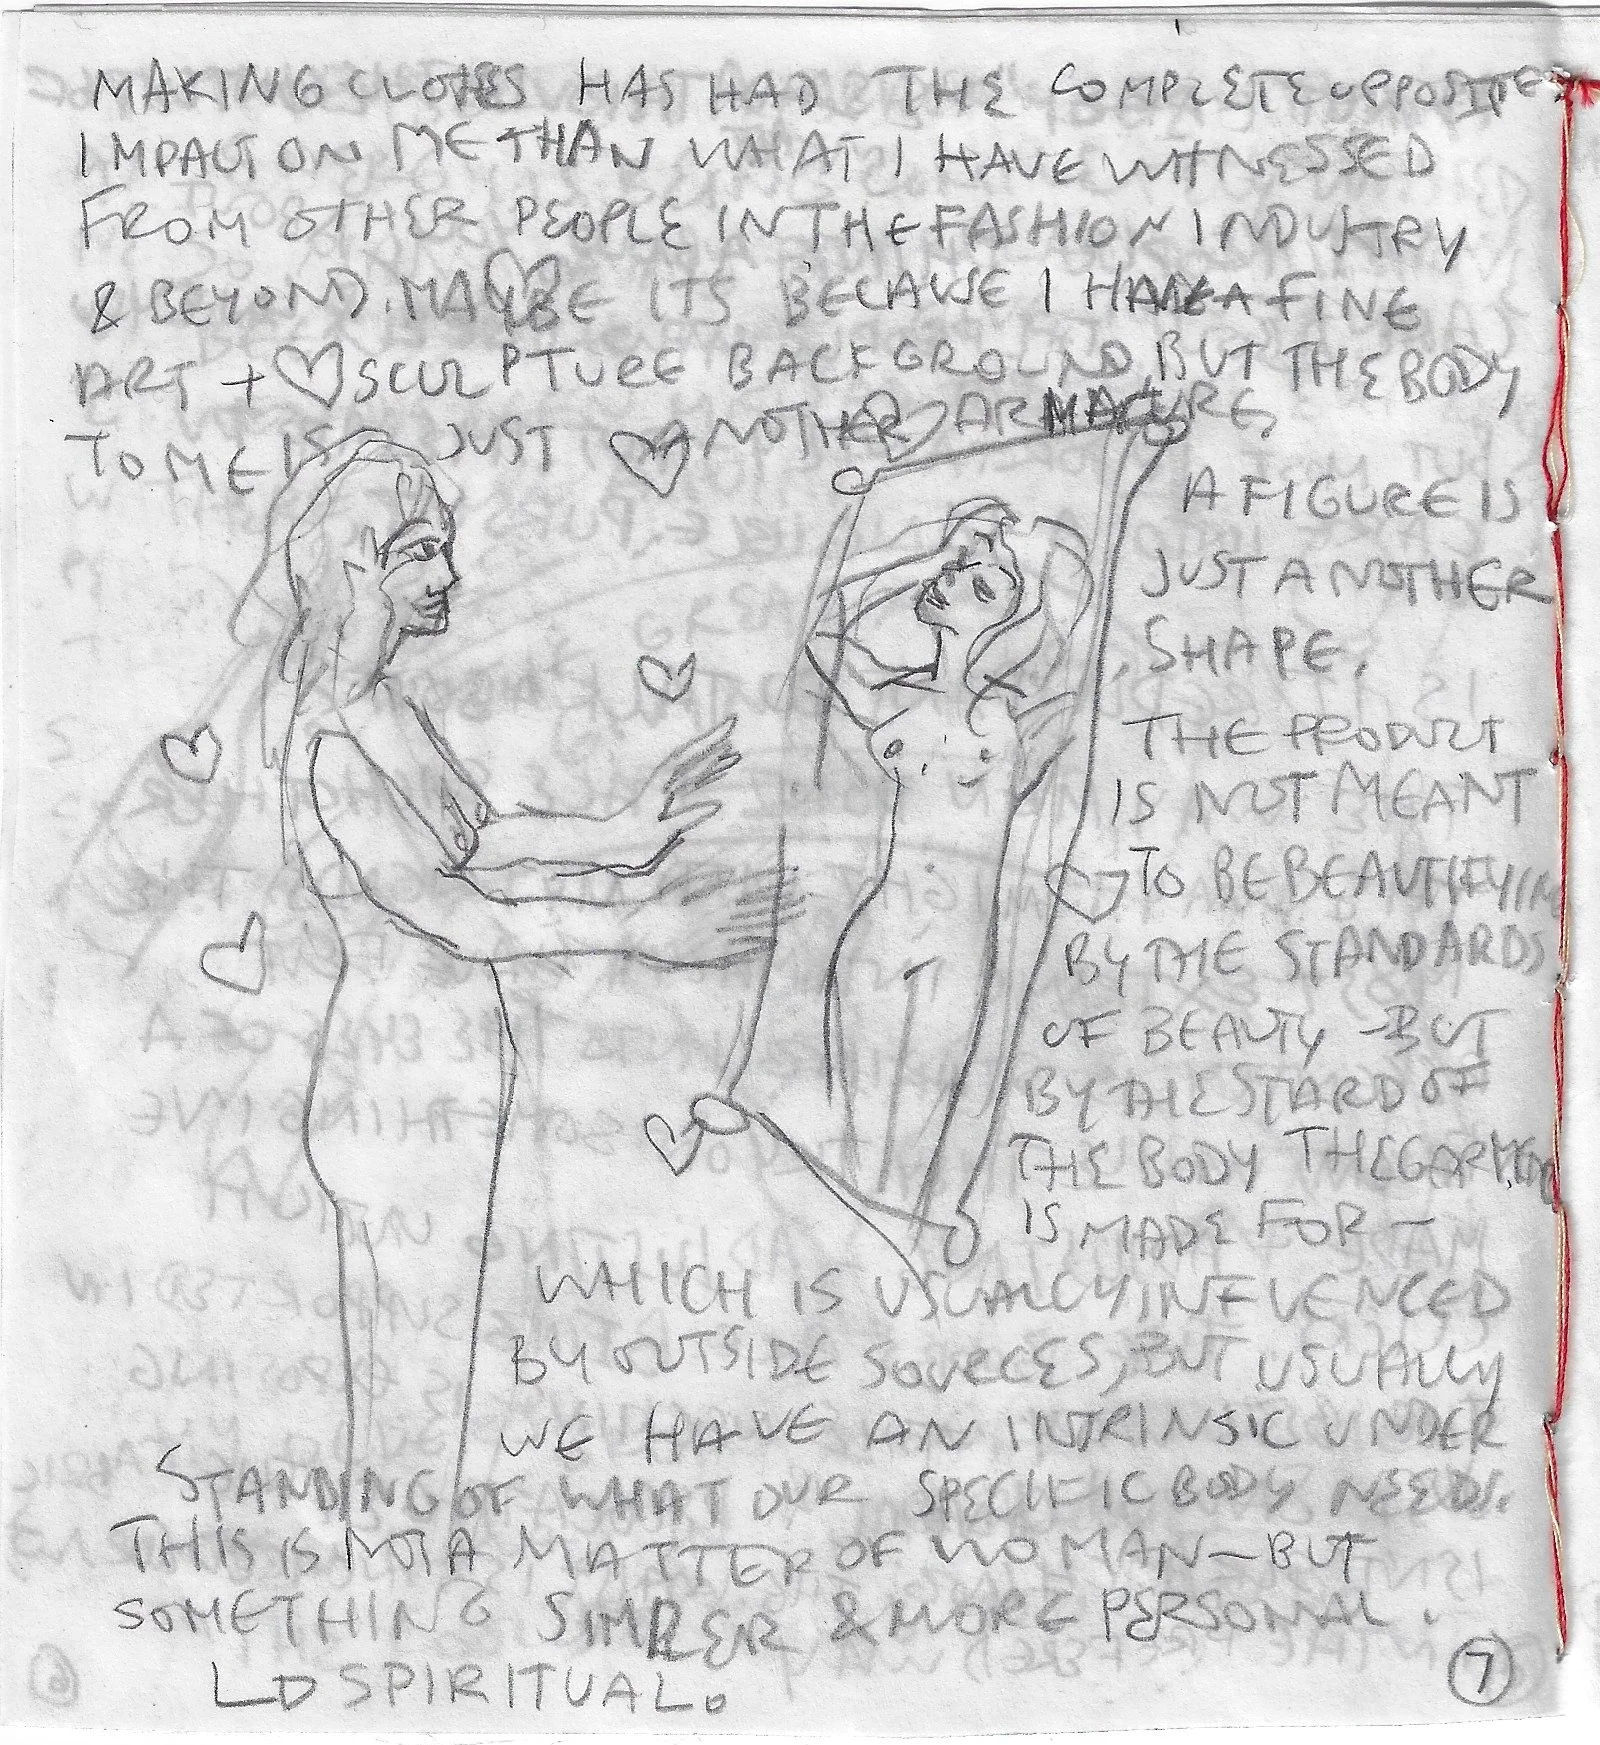 MAKING CLOTHES HAS HAD THE COMPLETE OPPOSITE
IMPACT ON ME THAN WHAT I HAVE WITNESSED
FROM OTHER PEOPLE IN THE FASHION INDUSTRY
& BEYOND. MAYBE ITS BECAUSE I HAVE A FINE
ART + SCULPTURE BACKGROUND, BUT THE BODY
TO ME IS JUST ANOTHER ARMATURE,
A FIGURE IS
JUST ANOTHER
SHAPE.
THE PRODUCT
IS NOT MEANT
TO BE BEAUTIFYING
BY THE STANDARDS
OF BEAUTY - BUT
BY THE STARD OF
THE BODY THE GARMENT
IS MADE FOR -
WHICH IS USUALLY INFLUENCED
BY OUTSIDE SOURCES, BUT USUALLY
WE HAVE AN INTRINSIC UNDER
STANDING OF WHAT OUR SPECIFIC BODY NEEDS.
THIS IS NOT A MATTER OF WOMAN - BUT
SOMETHING SIMPLER & MORE PERSONAL.
SPIRITUAL.
7